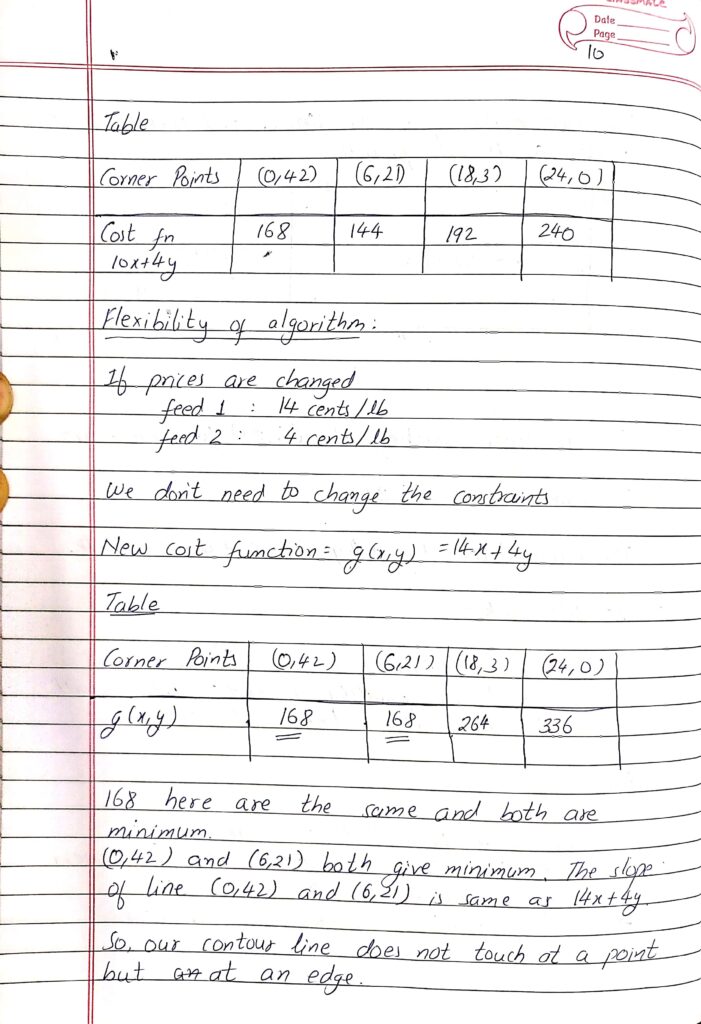 Date
Page
10
Table
Corner Points (0,42) (6,21) (18,3) (24,0)
Cost fn 168 144 192 240
10x+4y
Flexibility of algorithm:
If prices are changed
feed 1 : 14 cents/lb
feed 2 : 4 cents/lb
We don't need to change the constraints
New cost function = g(x,y) = 14x+4y
Table
Corner Points (0,42) (6,21) (18,3) (24,0)
g(x,y) 168 168 264 336
168 here are the same and both are
minimum.
(0,42) and (6,21) both give minimum. The slope
of line (0,42) and (6,21) is same as 14x+4y.
So, our contour line does not touch at a point
but at an edge.